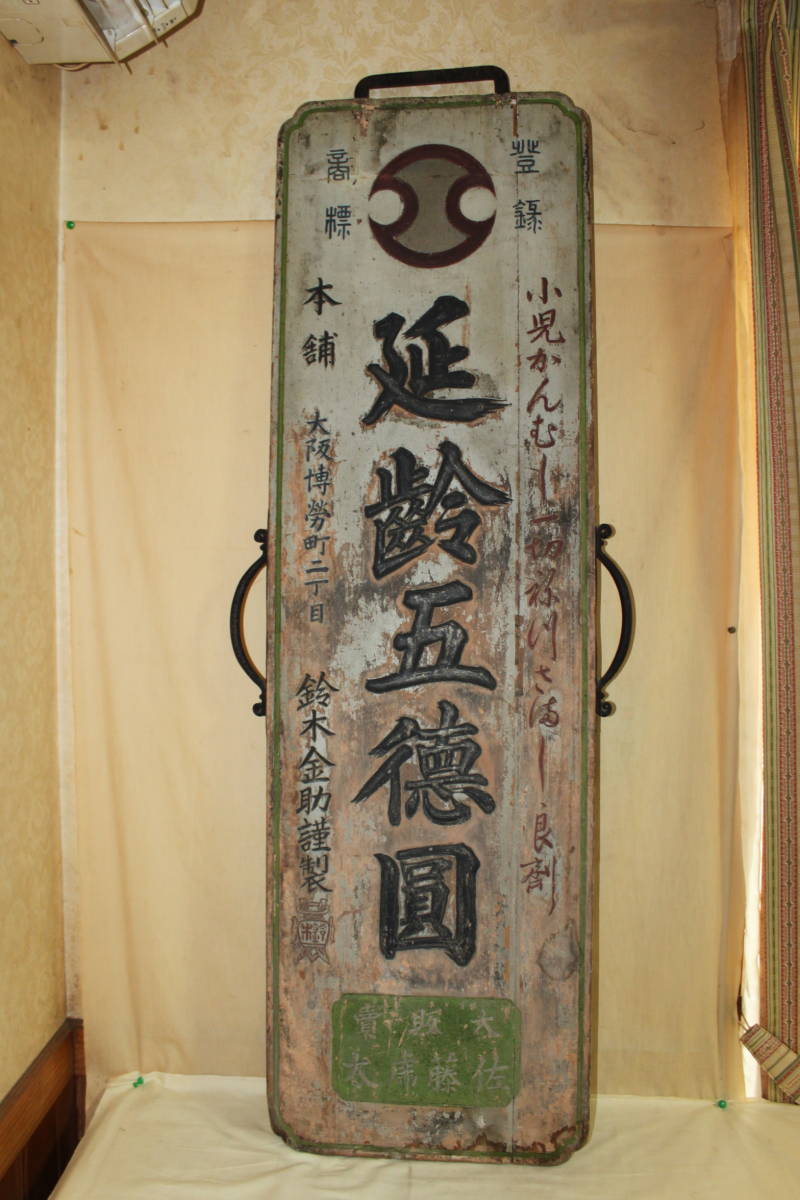 登錄
商標
小児かんむし一切ねつさまし良劑
延齡五德圓
本舖 大阪博勞町二丁目 鈴木金助謹製
大販賣
佐藤虎太